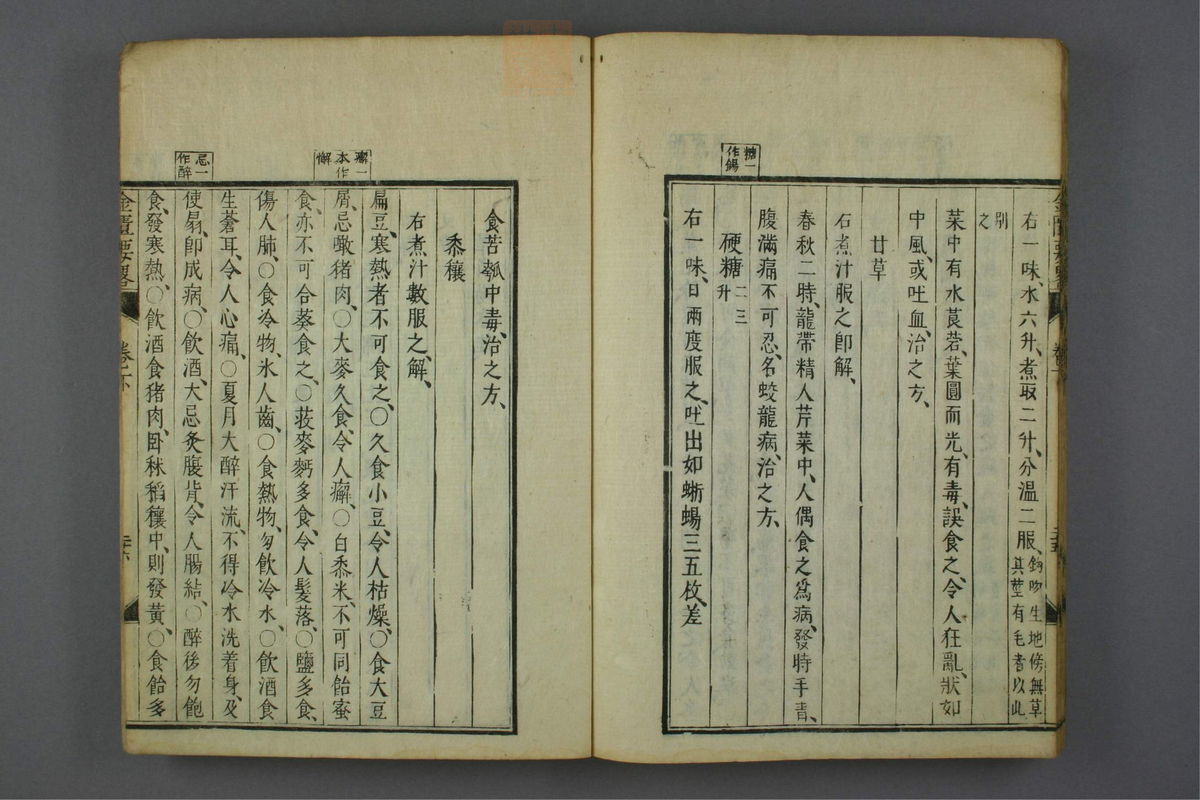 右一味、水六升、煮取二升、分温二服、鈎吻生地傍無草其莖有毛者以此
別之
菜中有水莨菪、葉圓而光、有毒、誤食之、令人狂亂、狀如
中風、或吐血、治之方、
甘草
右煮汁服之即解、
春秋二時、龍帶精人芹菜中、人偶食之爲病、發時手青、
腹滿痛不可忍、名蛟龍病、治之方、
糖一作餳
硬糖二三升
右一味、日兩度服之、吐出如蜥蜴三五枚、差
食苦瓠中毒、治之方、
黍穰
右煮汁數服之、解、
扁豆、寒熱者不可食之、〇久食小豆、令人枯燥、〇食大豆
癬一本作懈
屑、忌噉猪肉、〇大麥久食、令人癬、〇白黍米、不可同飴蜜
食、亦不可合葵食之、〇荍麥麪多食、令人髮落、〇鹽多食、
傷人肺、〇食冷物、氷人齒、〇食熱物、勿飲冷水、〇飲酒食
生蒼耳、令人心痛、〇夏月大醉汗流、不得冷水洗着身、及
忌一作醉
使扇、即成病、〇飲酒、大忌灸腹背、令人腸結、〇醉後勿飽
食、發寒熱、〇飲酒食猪肉、臥秫稻穰中、則發黃、〇食飴多
金匱要畧
卷下